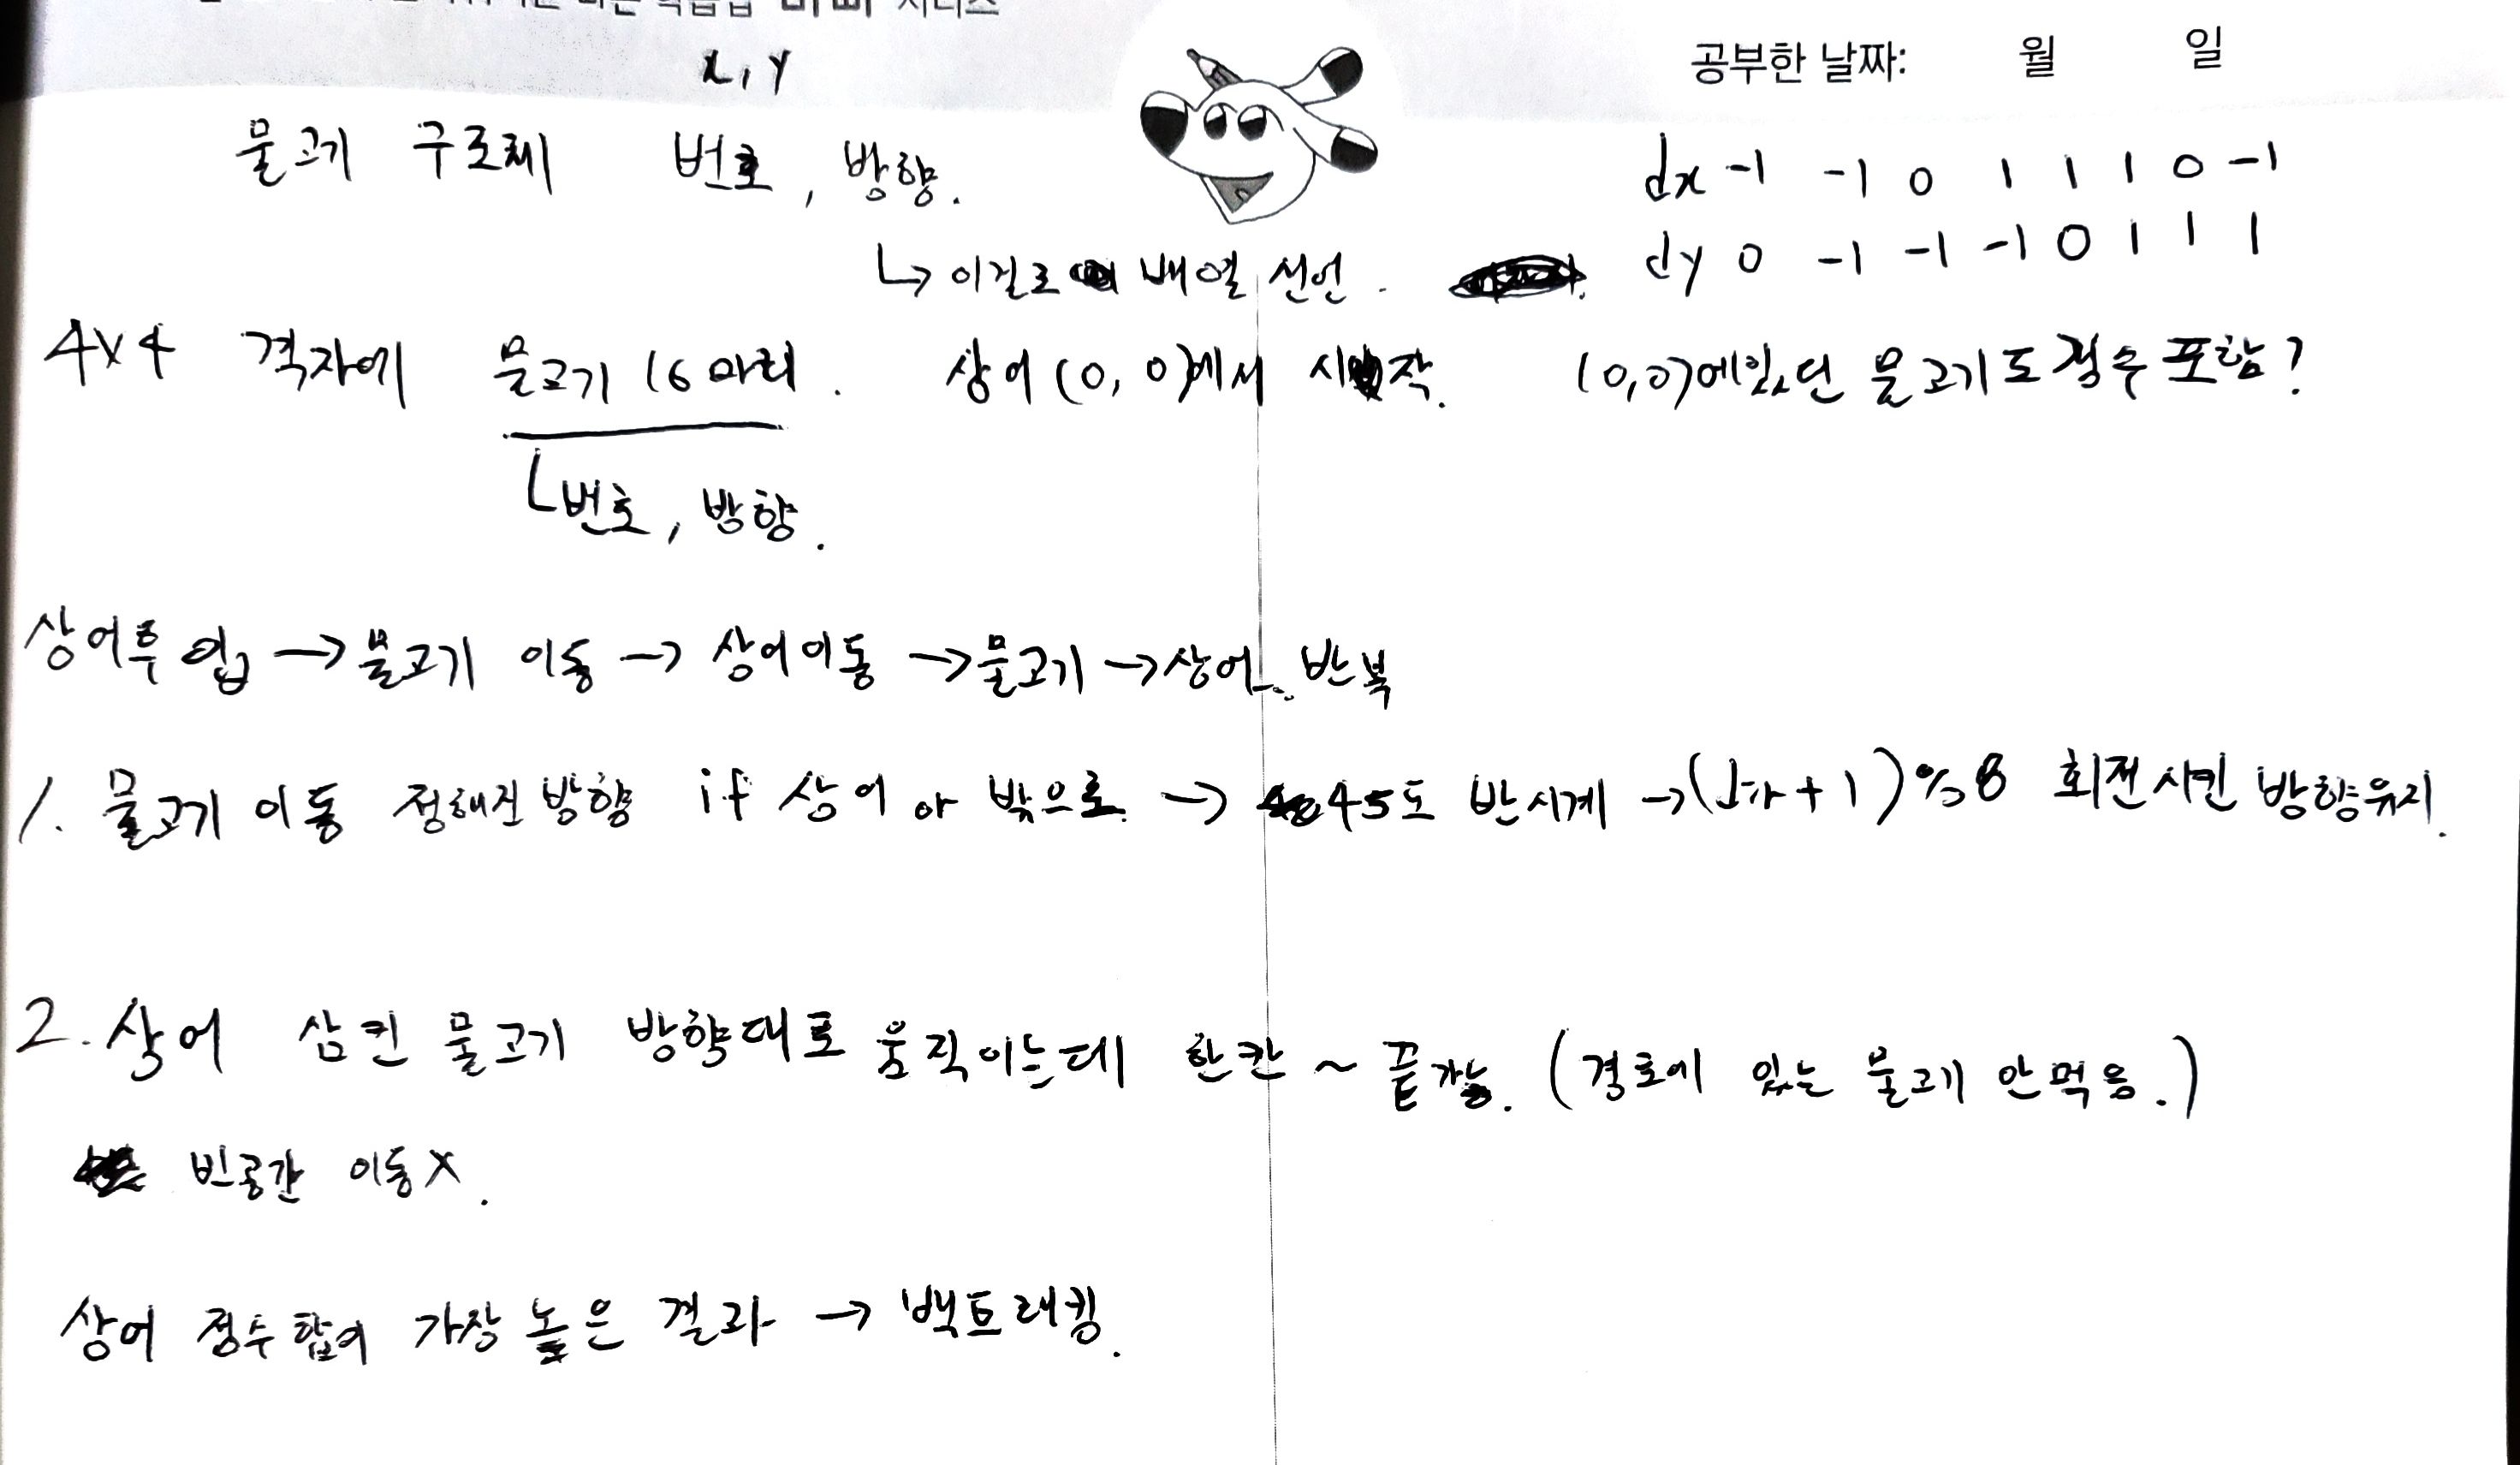 시리즈
공부한 날짜: 월 일
x, y
물고기 구조체 번호, 방향.
dx -1 -1 0 1 1 1 0 -1
dy 0 -1 -1 -1 0 1 1 1
↳ 이걸로 배열 선언.
4x4 격자에 물고기 16마리. 상어 (0, 0)에서 시작. (0,0)에있던 물고기도 점수 포함?
번호, 방향.
상어투입 → 물고기 이동 → 상어이동 → 물고기 → 상어.. 반복
1. 물고기 이동 정해진 방향 if 상어 or 밖으로. → 45도 반시계 → (d + 1) % 8 회전시킨 방향유지.
2. 상어 삼킨 물고기 방향대로 움직이는데 한칸 ~ 끝가능. (경로에 있는 물고기 안먹음.)
빈공간 이동X.
상어 점수합이 가장 높은 결과 → 백트래킹.